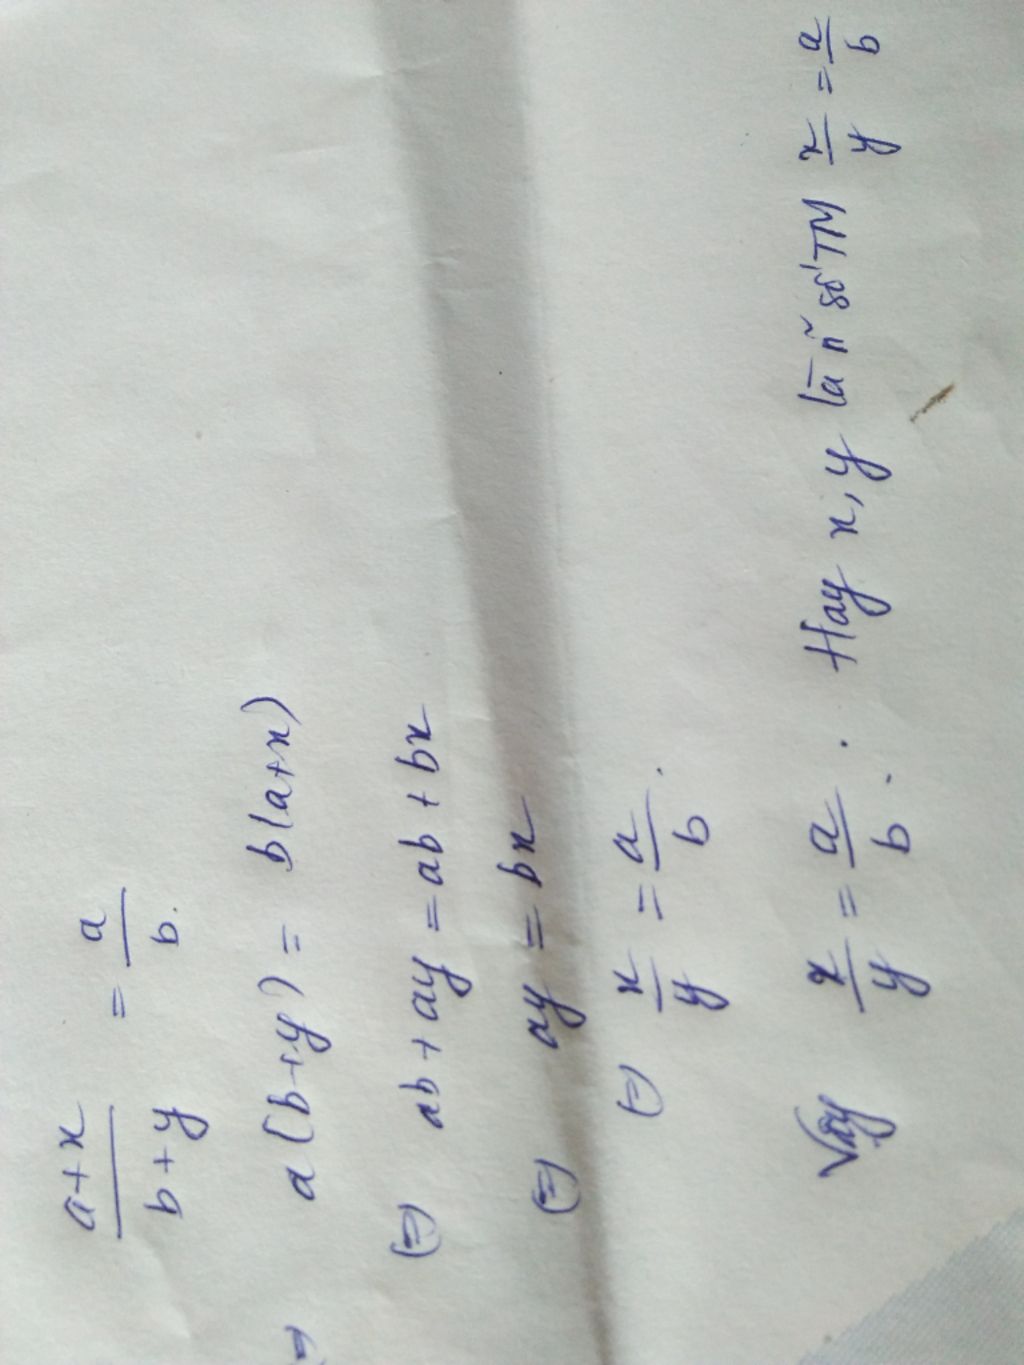 a+x/b+y = a/b.
⇒ a(b+y) = b(a+x)
⇔ ab + ay = ab + bx
⇔ ay = bx
⇔ x/y = a/b.
Vậy x/y = a/b. Hay x, y là n~ số TM x/y = a/b